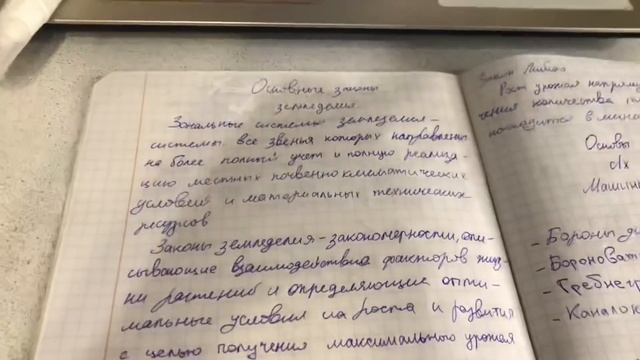 Основные законы
земледелия.
Зональные системы земледелия –
системы все звенья которых направлены
на более полный учет и полную реализа-
цию местных почвенно климатических
условий и материальных технических
ресурсов
Законы земледелия – закономерности, опи-
сывающие взаимодействия факторов жиз-
ни растений и определяющие опти-
мальные условия на роста и развития
с целью получения максимального урожая
Закон Либиха
Рост урожая напряму
чения количества
находится в мини
Основы
с/х
Машин
- Бороны
- Бороноват
- Гребнег
- Каналок